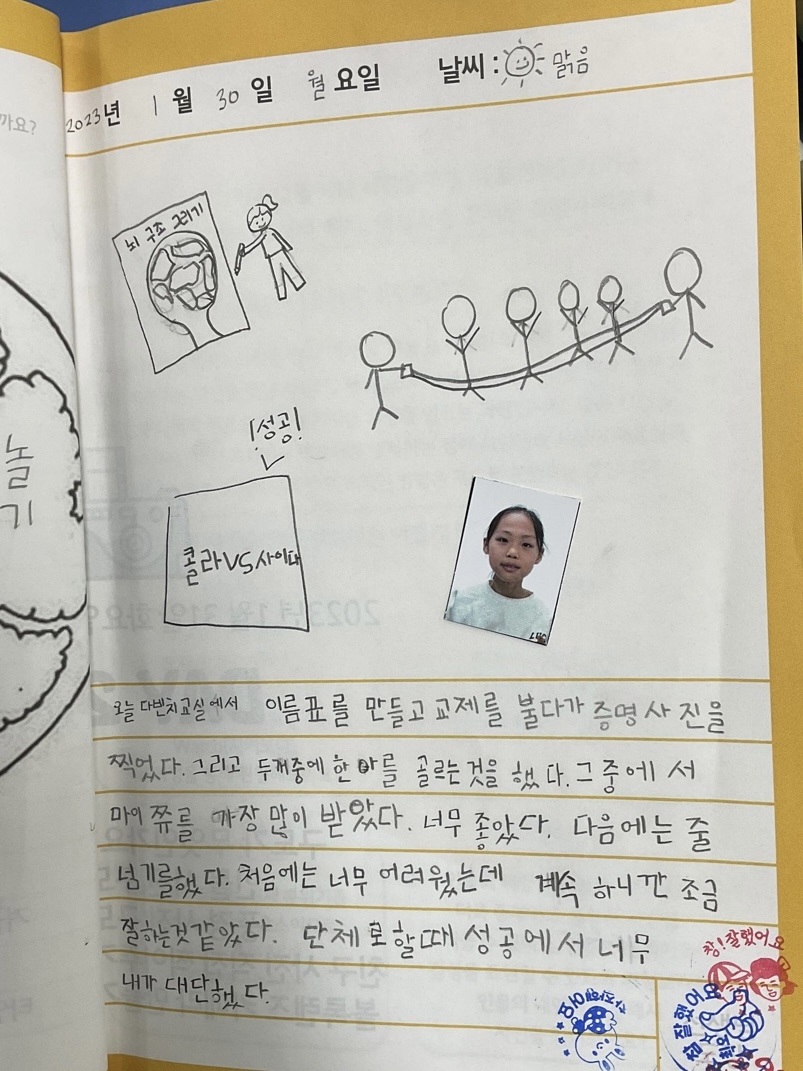 까요?
2023년 1월 30일 월요일 날씨: 맑음
뇌 구조 그리기
!성공!
콜라VS사이다
놀
기
오늘 다빈치교실에서 이름표를 만들고 교제를 불다가 증명사진을
찍었다. 그리고 두개중에 한 아를 골르는것을 했다. 그중에서
마이쮸를 가장 많이 받았다. 너무 좋았다. 다음에는 줄
넘기를했다. 처음에는 너무 어려웠는데 계속 하니깐 조금
잘하는것같았다. 단체로할때 성공에서 너무
내가 대단했다.
참!잘했어요
참 잘했어요
최고